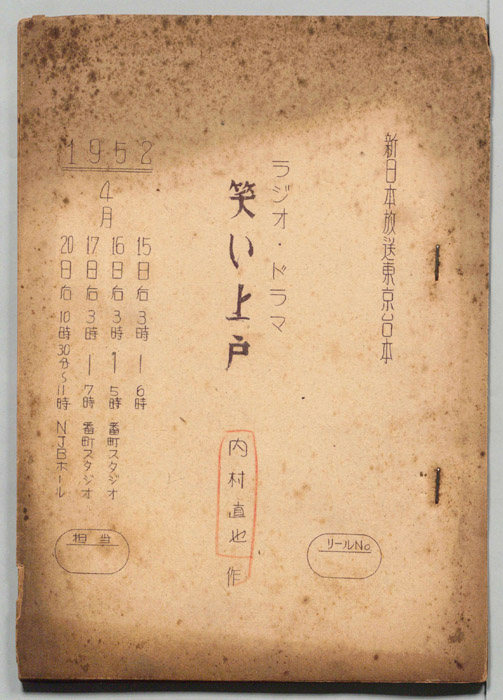 新日本放送東京台本
ラジオ・ドラマ
笑い上戸
内村直也 作
1952
4月
15日后3時―6時
16日后3時―5時 番町スタジオ
17日后3時―7時 番町スタジオ
20日后10時30分~11時 NJBホール
リールNo.
担当